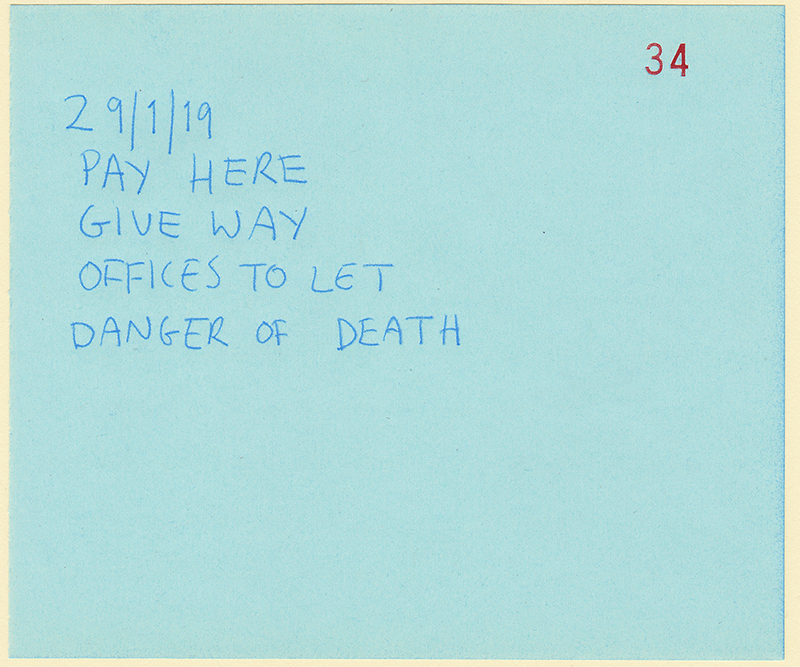 34
29/1/19
PAY HERE
GIVE WAY
OFFICES TO LET
DANGER OF DEATH